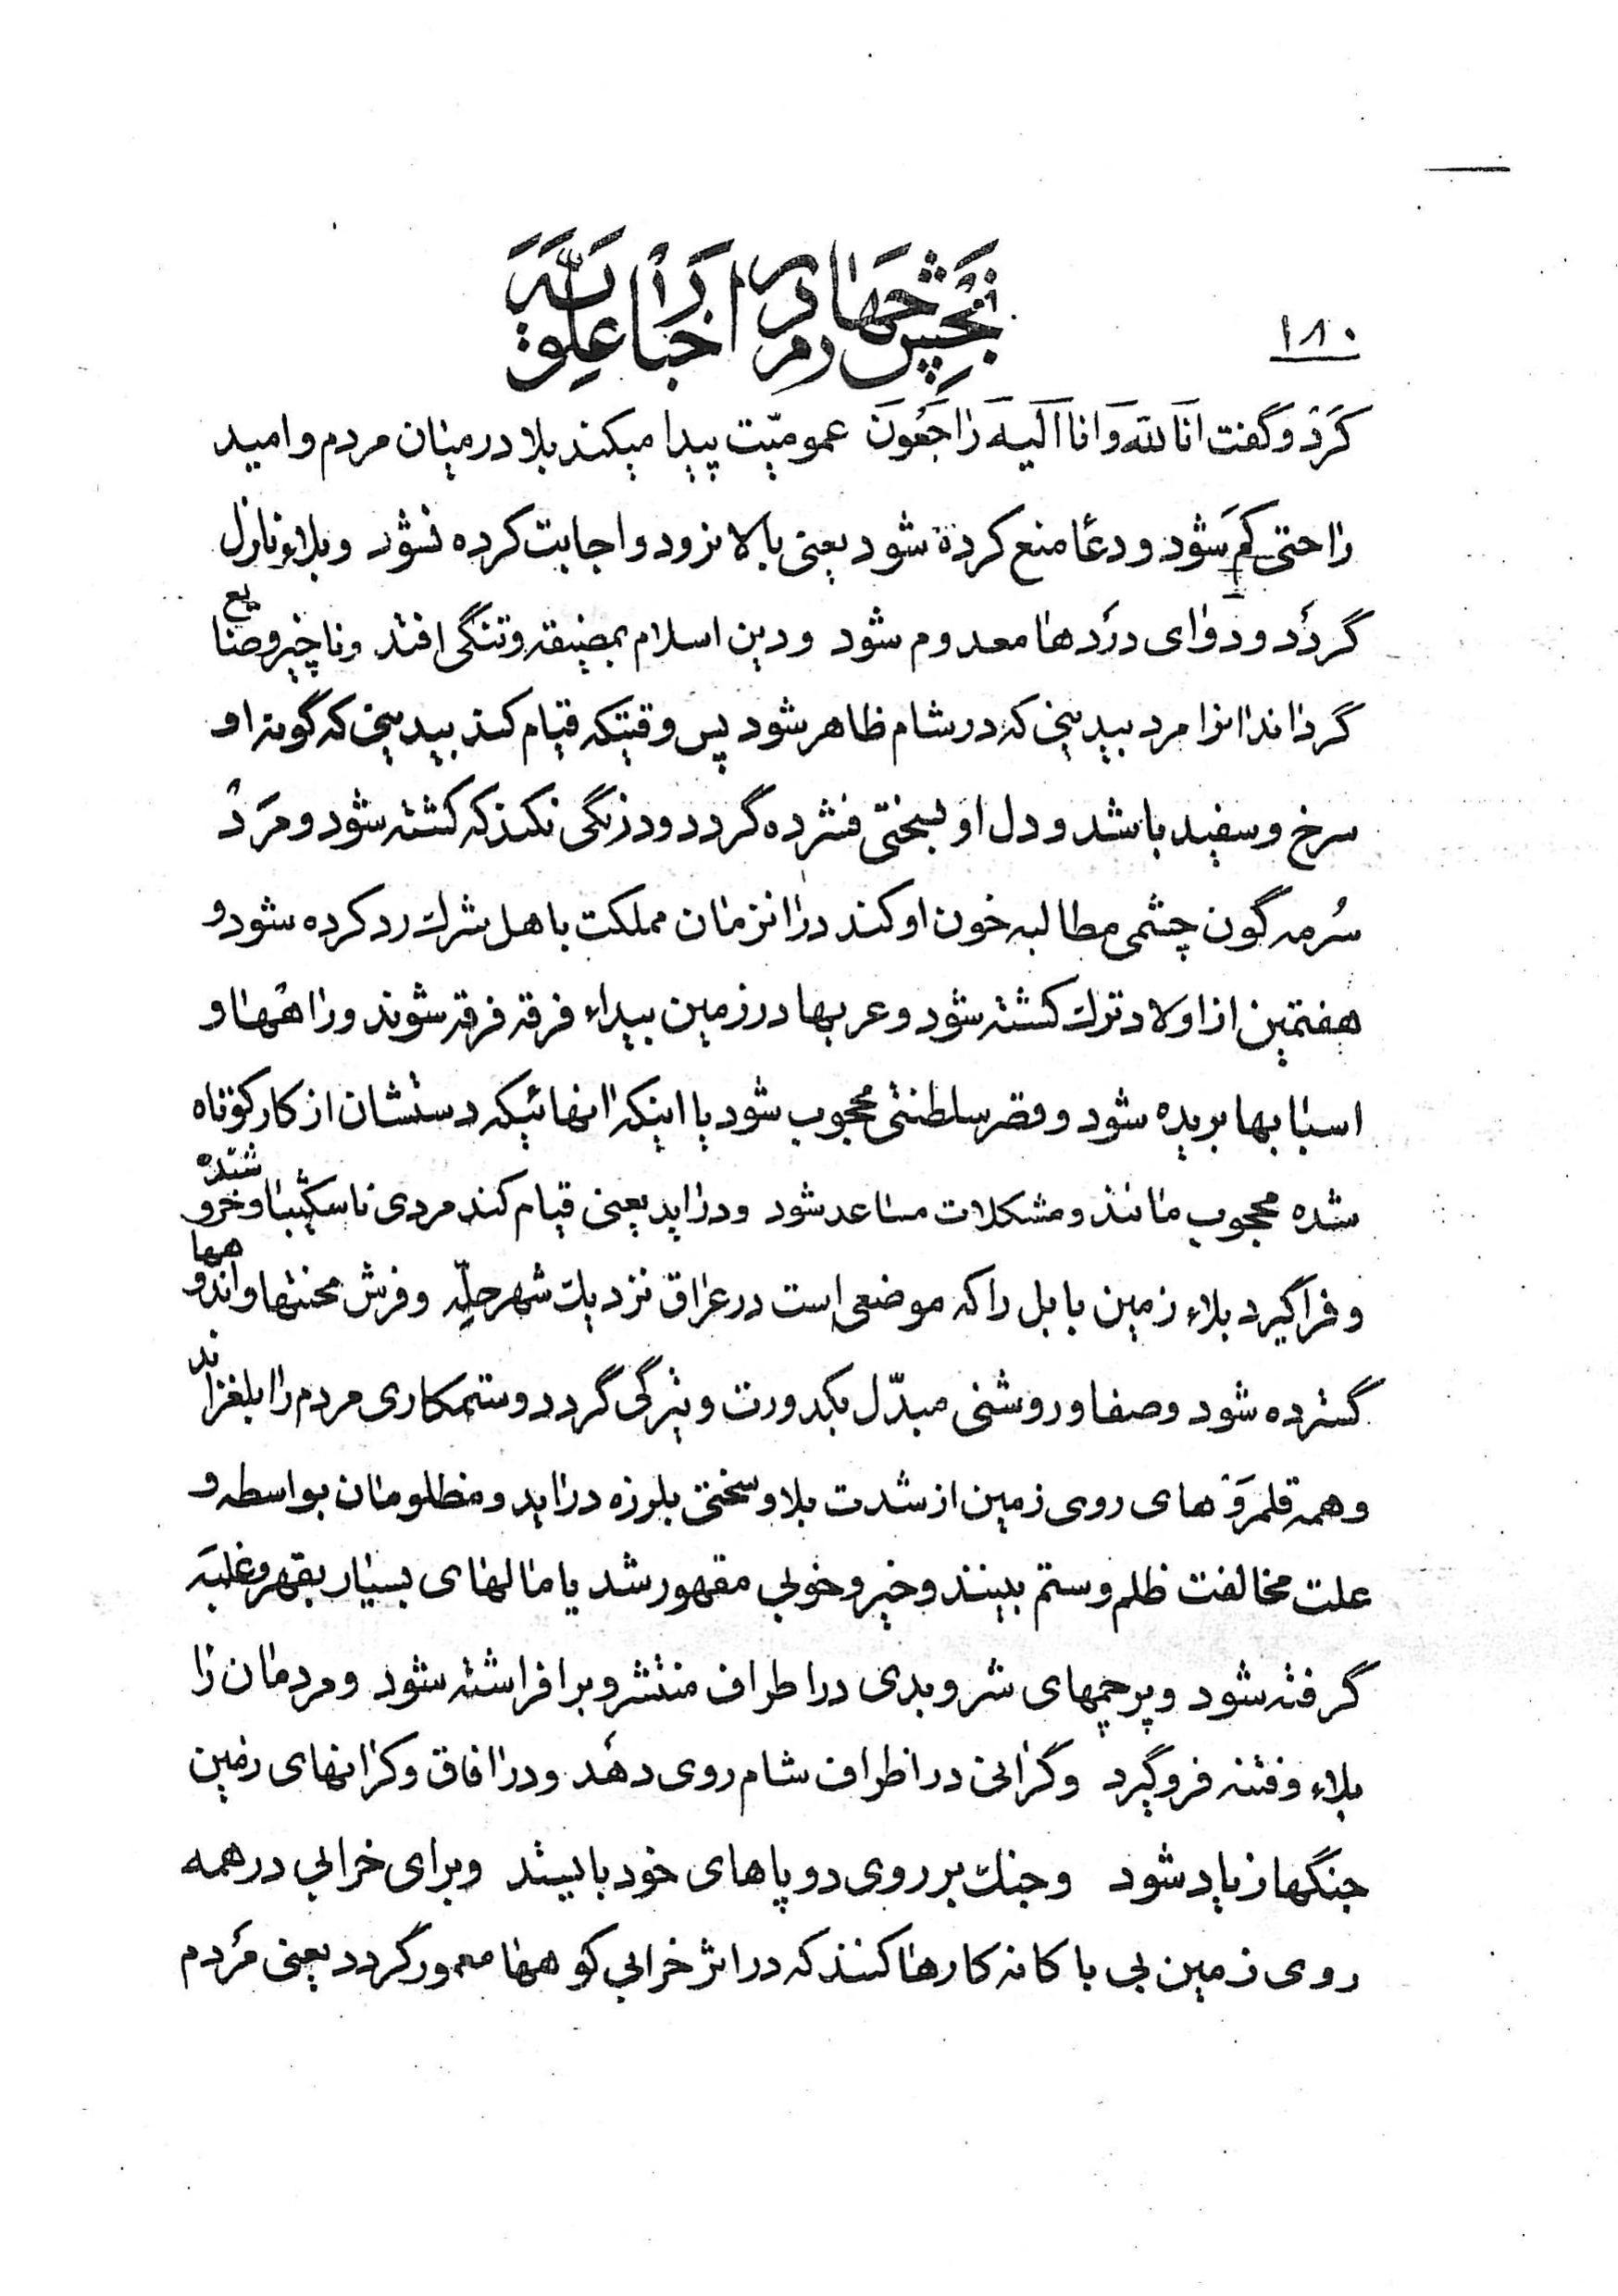 بخش چهارم در اخبار علویه
۱۸۰
کرد و گفت انا لله و انا الیه راجعون عمومیّت پیدا میکند بلا در میان مردم و امید
راحتی کم شود و دعا منع کرده شود یعنی بالا نرود و اجابت کرده نشود و بلاء نازل
گردد و دوای دردها معدوم شود و دین اسلام بمضیقه و تنگی افتد و ناچیز و ضایع
گرداند انرا مرد بیدینی که در شام ظاهر شود پس وقتیکه قیام کند بیدینی که گونه او
سرخ و سفید باشد و دل او بسختی فشرده گردد و درنگی نکند که کشته شود و مرد
سُرمه گون چشمی مطالبه خون او کند در انزمان مملکت باهل شرک رد کرده شود و
هفتمین از اولاد ترک کشته شود و عربها در زمین بیداء فرقه فرقه شوند و راهها و
اسبابها بریده شود و قصر سلطنتی محجوب شود یا اینکه انهائیکه دستشان از کار کوتاه
شده محجوب مانند و مشکلات مساعد شود و دراید یعنی قیام کند مردی ناشکیبا و خروشنده
و فراگیرد بلاء زمین بابل را که موضعی است در عراق نزدیک شهر حلّه و فرش محنتها و اندوهها
گسترده شود و صفا و روشنی مبدّل بکدورت و تیرگی گردد و ستمکاری مردم را بلغزاند
و همه قلمروهای روی زمین از شدت بلا و سختی بلرزه دراید و مظلومان بواسطه و
علت مخالفت ظلم و ستم ببینند و خیر و خوبی مقهور شد یا مالهای بسیار بقهر و غلبه
گرفته شود و پرچمهای شر و بدی در اطراف منتشر و برافراشته شود و مردمان را
بلاء و فتنه فروگیرد و گرانی در اطراف شام روی دهد و در افاق و کرانهای زمین
جنگها زیاد شود و جنگ بر روی دو پاهای خود بایستد و برای خرابی در همه
روی زمین بی باکانه کارها کنند که در اثر خرابی کوهها معمور گردد یعنی مردم